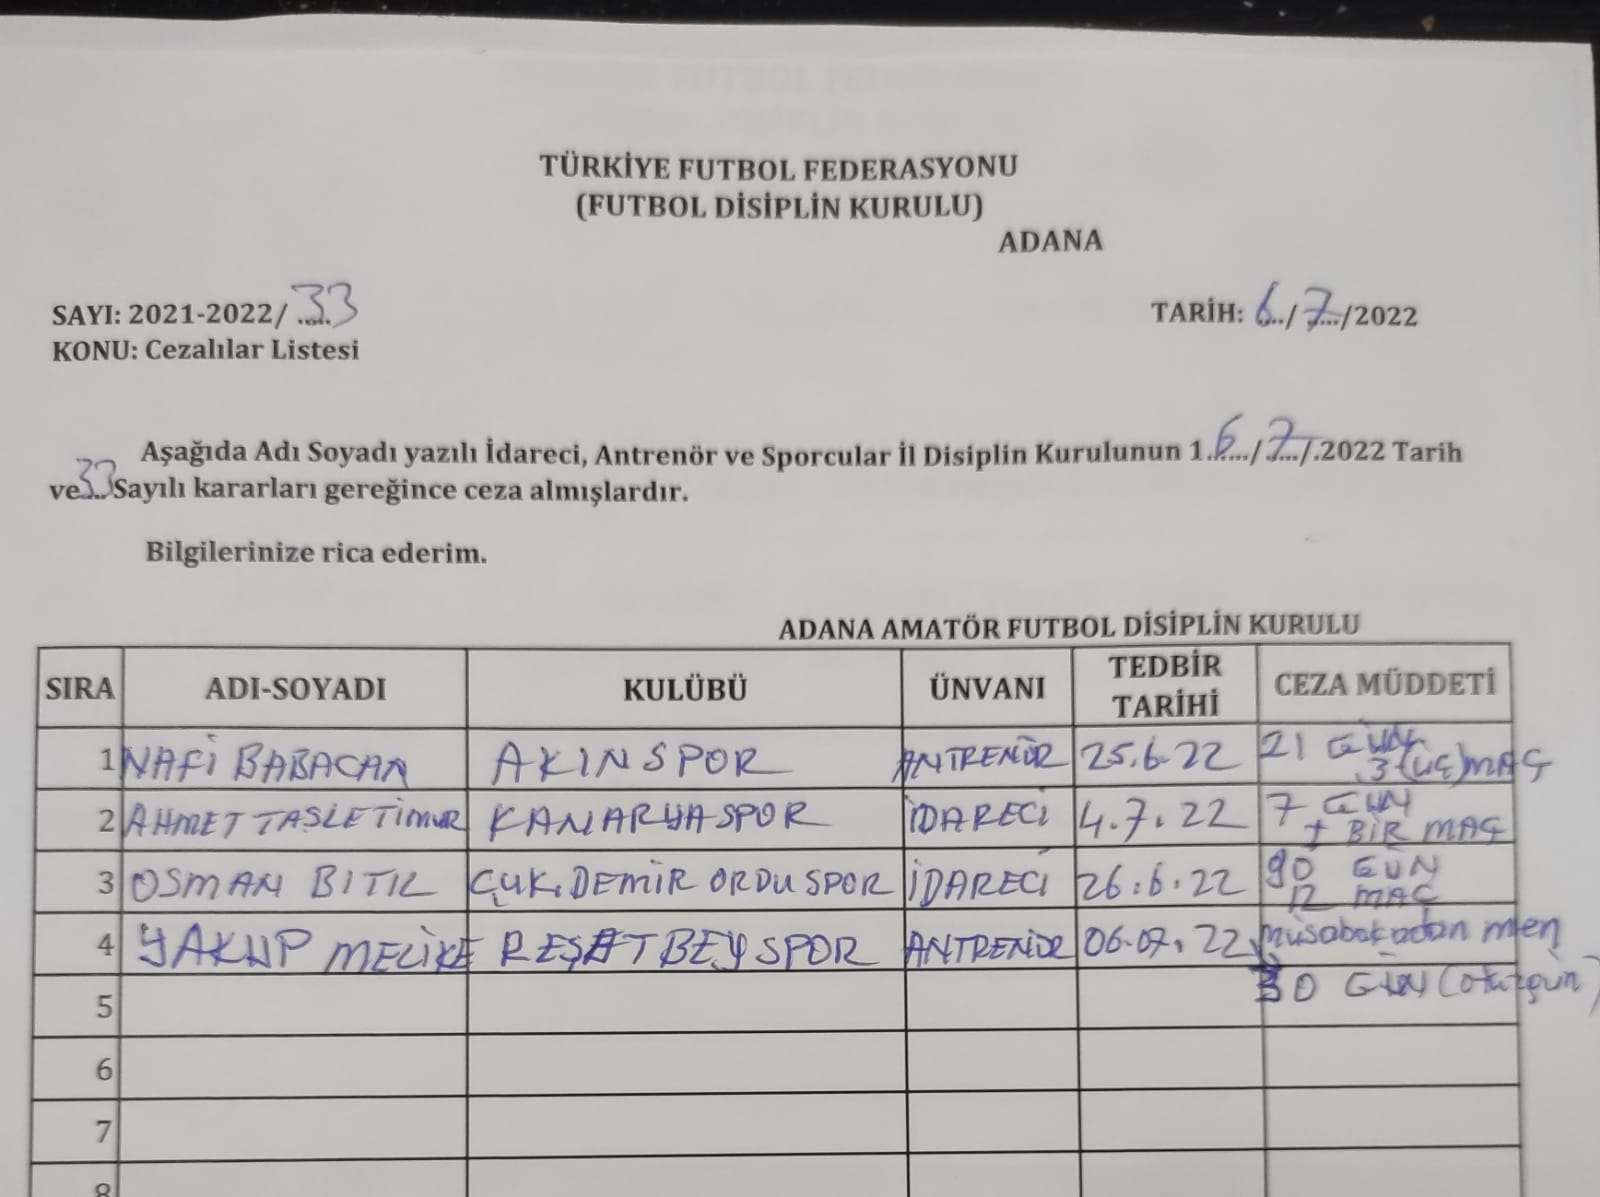 TÜRKİYE FUTBOL FEDERASYONU
(FUTBOL DİSİPLİN KURULU)
ADANA
SAYI: 2021-2022/ 33
TARİH: 6/7/2022
KONU: Cezalılar Listesi
Aşağıda Adı Soyadı yazılı İdareci, Antrenör ve Sporcular İl Disiplin Kurulunun 1.6.../7.../.2022 Tarih
ve 33 Sayılı kararları gereğince ceza almışlardır.
Bilgilerinize rica ederim.
ADANA AMATÖR FUTBOL DİSİPLİN KURULU
SIRA ADI-SOYADI KULÜBÜ ÜNVANI TEDBİR TARİHİ CEZA MÜDDETİ
1 NAFİ BABACAN AKINSPOR ANTRENÖR 25.6.22 21 GÜN 3 (üç) MAÇ
2 AHMET TAŞLETİMUR KANARYASPOR İDARECİ 4.7.22 7 GÜN + BİR MAÇ
3 OSMAN BITIL ÇUK.DEMİR ORDUSPOR İDARECİ 26.6.22 90 GÜN 12 MAÇ
4 YAKUP MELİKE REŞATBEYSPOR ANTRENÖR 06.07.22 müsabakadan men
5 30 GÜN (otuzgün)
6
7
8